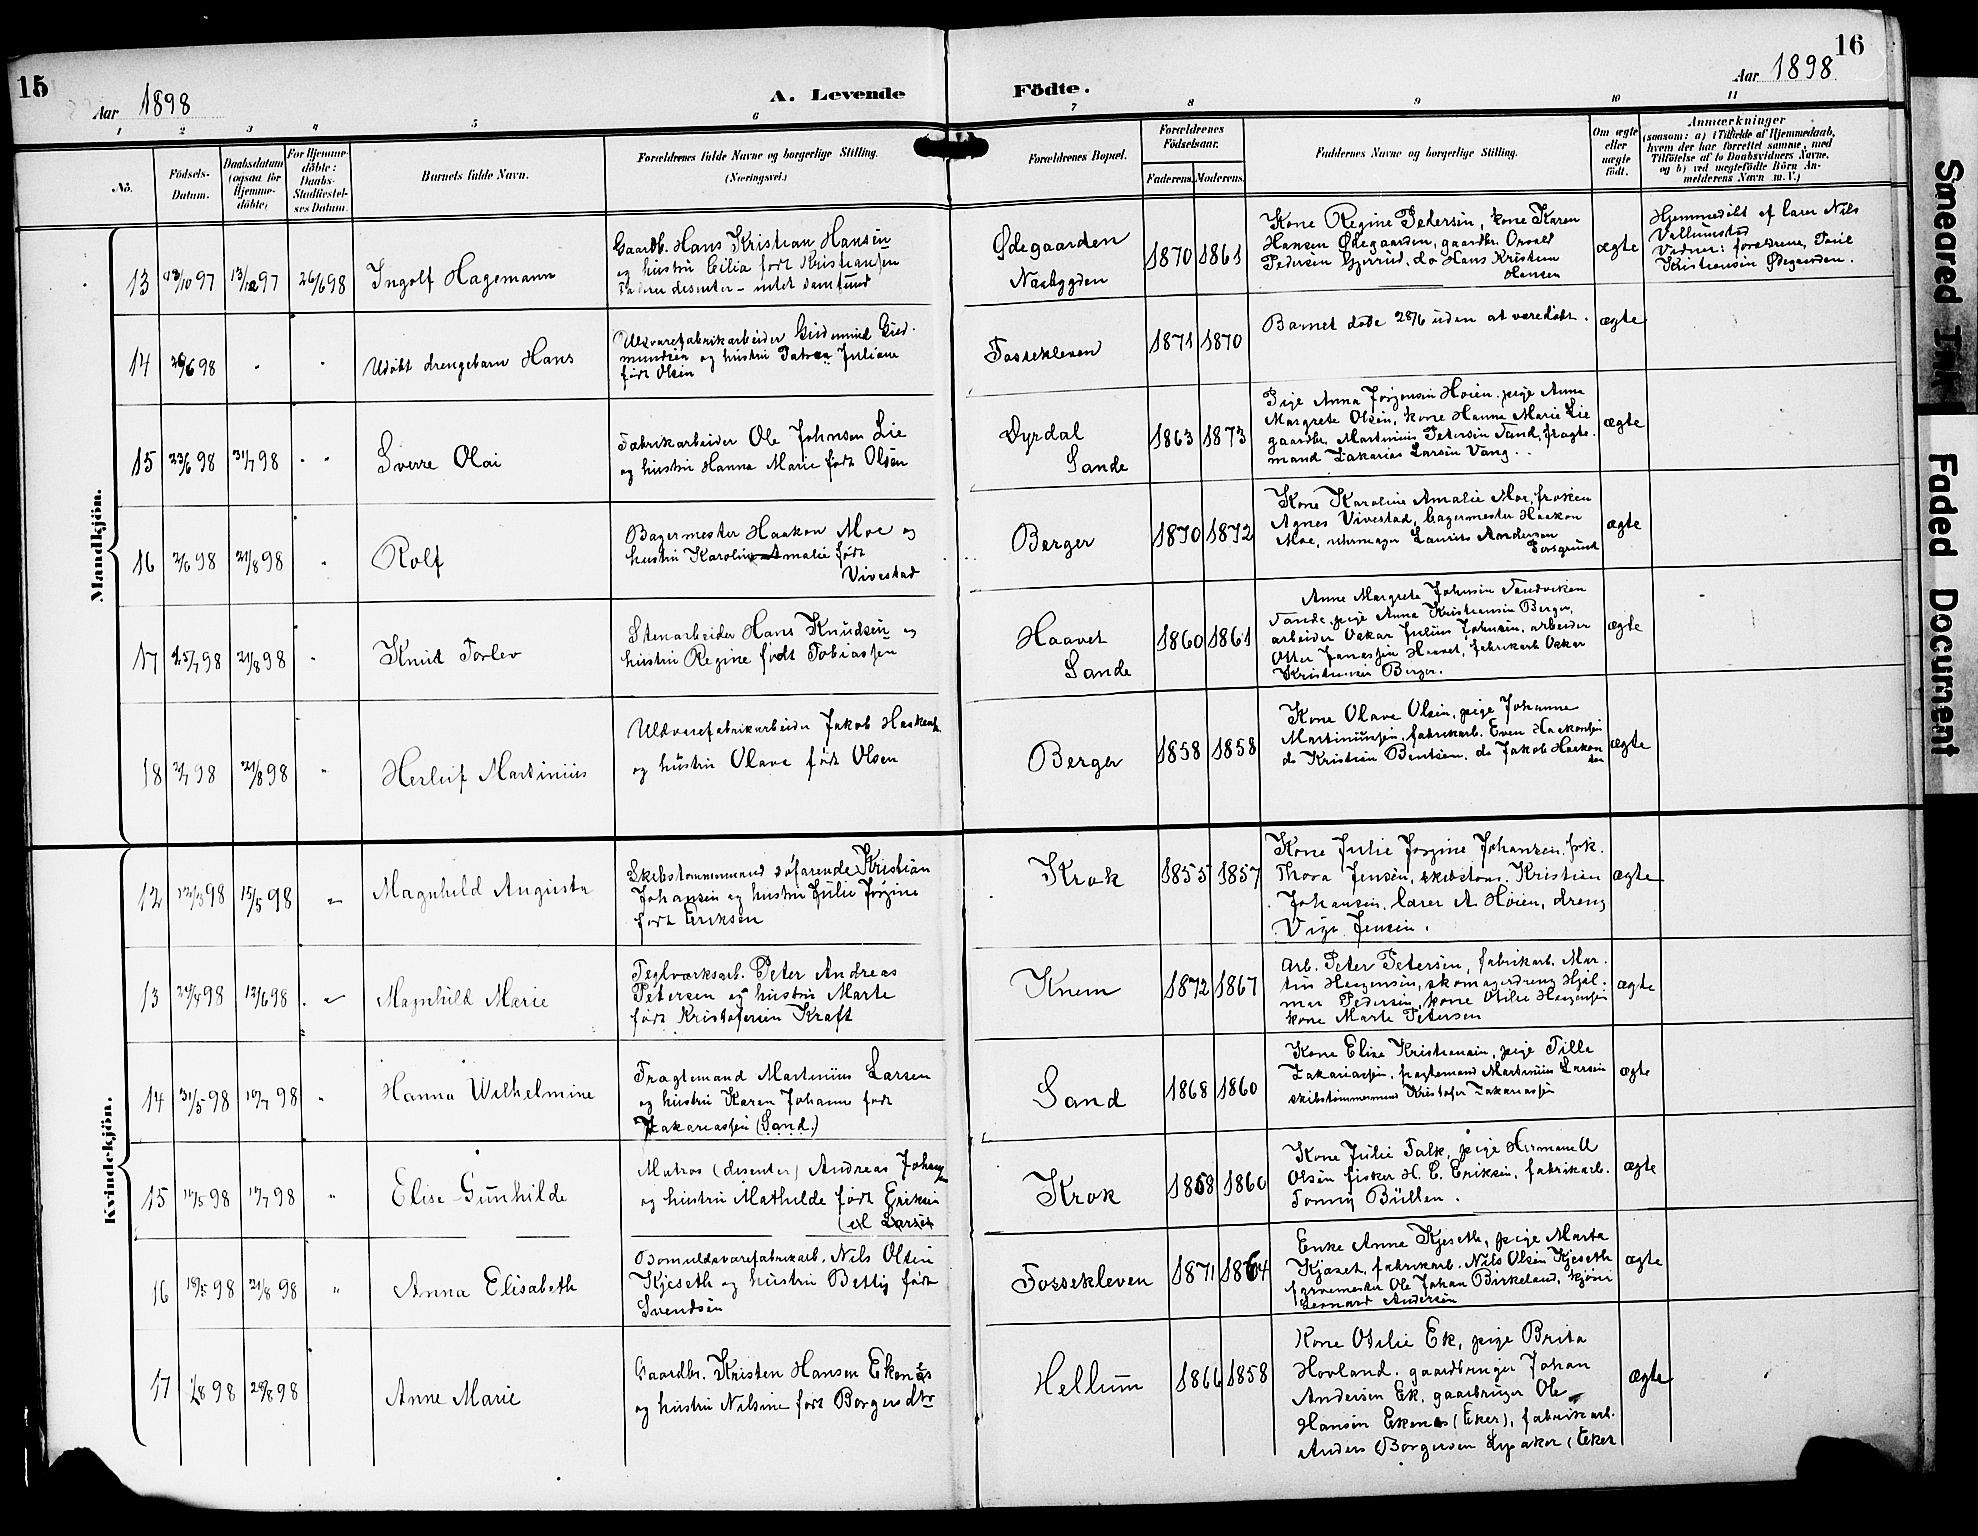 15
Aar 1898
A. Levende
Födte.
Aar 1898
16
1 2 3 4 5 6 7 8 9 10 11
No.
Födsels-Datum.
Daabsdatum (ogsaa for Hjemme-döbte)
For Hjemme-döbte: Daabs-Stadfæstel-ses Datum.
Barnets fulde Navn.
Forældrenes fulde Navne og borgerlige Stilling.
(Næringsvei.)
Forældrenes Bopæl.
Forældrenes Födselsaar.
Faderens. Moderens.
Faddernes Navne og borgerlige Stilling.
Om ægte eller uægte födt.
Anmærkninger
(saasom: a) i Tilfælde af Hjemmedaab, hvem der har forrettet samme, med Tilföielse af to Daabsvidners Navne, og b) ved uægtefödte Börn An-melderens Navn m. V.)
Mandkjön.
13 13/10 97 13/12 97 26/6 98 Ingolf Hagemann
Gaardb. Hans Kristian Hansen
og hustru Cilia født Kristiansen
Fader desenter – intet samfund
Ødegaarden
Næsbygden
1870 1861
Kone Regine Pedersen, kone Karen
Hansen Ødegaarden, gaardbr. Orvald
Pedersen Gjerrud, do Hans Kristian
Hansen
ægte
Hjemmedøbt af lærer Nils
Vellumstad
Vidner: forældrene, Pauli
Kristiansen Ødegaarden.
14 28/6 98 Udøbt drengebarn Hans
Uldvarefabrikarbeider Gudmund Gud-
mundsen og hustru Petrea Juliane
født Olsen
Fossekleven
1871 1870
Barnet døde 28/6 uden at være døbt.
ægte
15 23/6 98 31/7 98 Sverre Olai
Fabrikarbeider Ole Johnsen Lie
og hustru Hanna Marie født Olsen
Dyrdal
Sande
1863 1873
Pige Anna Jørgensen Høien, pige Anne
Margrete Olsen, kone Hanna Marie Lie
gaardbr. Martinius Petersen Sand, fragte-
mand Zakarias Larsen Vang.
ægte
16 2/6 98 21/8 98 Rolf
Bagermester Haakon Moe og
hustru Karoline Amalie født
Vivestad
Berger
1870 1872
Kone Karoline Amalie Moe, frøken
Agnes Vivestad, bagermester Haakon
Moe, uhrmager Laurits Andersen
Porsgrund
ægte
17 25/7 98 21/8 98 Knut Torlev
Stenarbeider Hans Knudsen og
hustru Regine født Tobiassen
Haavet
Sande
1860 1861
Anne Margrete Johnsen Sandviken
Sande, pige Anna Kristiansen Berger,
arbeider Oskar Julius Johnsen, arbeider
Otter Jonassen Haavet, fabrikarb Oskar
Kristiansen Berger.
ægte
18 2/7 98 21/8 98 Herleif Martinius
Uldvarefabrikarbeider Jakob Haakons
og hustru Olava født Olsen
Berger
1858 1858
Kone Olava Olsen, pige Johanne
Martiniussen, fabrikarb. Even Haakonsen
do Kristian Bentsen, do Jakob Haakon
sen
ægte
Kvindekjön.
12 12/3 98 15/5 98 Magnhild Augusta
Skibstømmermand søfarende Kristian
Johansen og hustru Julie Jørgine
født Eriksen
Krok
1855 1857
Kone Julie Jørgine Johansen, frk.
Thora Jensen, skibstøm. Kristian
Johansen, lærer A Høien, dreng
Vigo Jensen.
ægte
13 24/4 98 12/6 98 Magnhild Marie
Teglværksarb. Peter Andreas
Petersen og hustru Marte
født Kristofersen Kraft
Knem
1872 1867
Arb. Peter Petersen, fabrikarb. Mar-
tin Heagensen, skomagerdreng Hjal-
mar Pedersen, kone Otilie Heagensen
kone Marte Petersen
ægte
14 31/5 98 10/7 98 Hanna Wilhelmine
Fragtemand Martinius Larsen
og hustru Karen Johanne født
Zakariassen (Sand.)
Sand
1868 1860
Kone Elise Kristiansen, pige Tilla
Zakariassen, fragtemand Martinius Larsen
skibstømmermand Kristofer Zakariassen
ægte
15 14/5 98 17/7 98 Elise Gunhilde
Matros (desenter) Andreas Johans
sen
og hustru Mathilde født Eriksen
(el Larsen
Krok
1868 1860
Kone Julie Falk, pige Hermanell
Olsen fisker H. E. Eriksen, fabrikarb.
Tonny Büllen.
ægte
16 18/5 98 21/8 98 Anna Elisabeth
Bomuldsvarefabrikarb. Nils Olsen
Kjeseth og hustru Betty født
Svendsen
Fossekleven
1871 1864
Enke Anne Kjeseth, pige Marta
Kjøset, fabrikarb. Nils Olsen Kjeseth
farvemester Ole Johan Birkeland, kjøni
Leonard Andersen
ægte
17 1/8 98 28/8 98 Anne Marie
Gaardbr. Kristen Hansen Ekenæs
og hustru Nilsine født Borgersdtr
Hellum
1866 1858
Kone Otilie Ek, pige Brita
Hovland, gaardbruger Johan
Andersen Ek, gaardbruger Ole
Hansen Ekenes (Eker), fabrikarb.
Anders Borgersen Lysaker (Eker
ægte
Smeared Ink
Faded Document